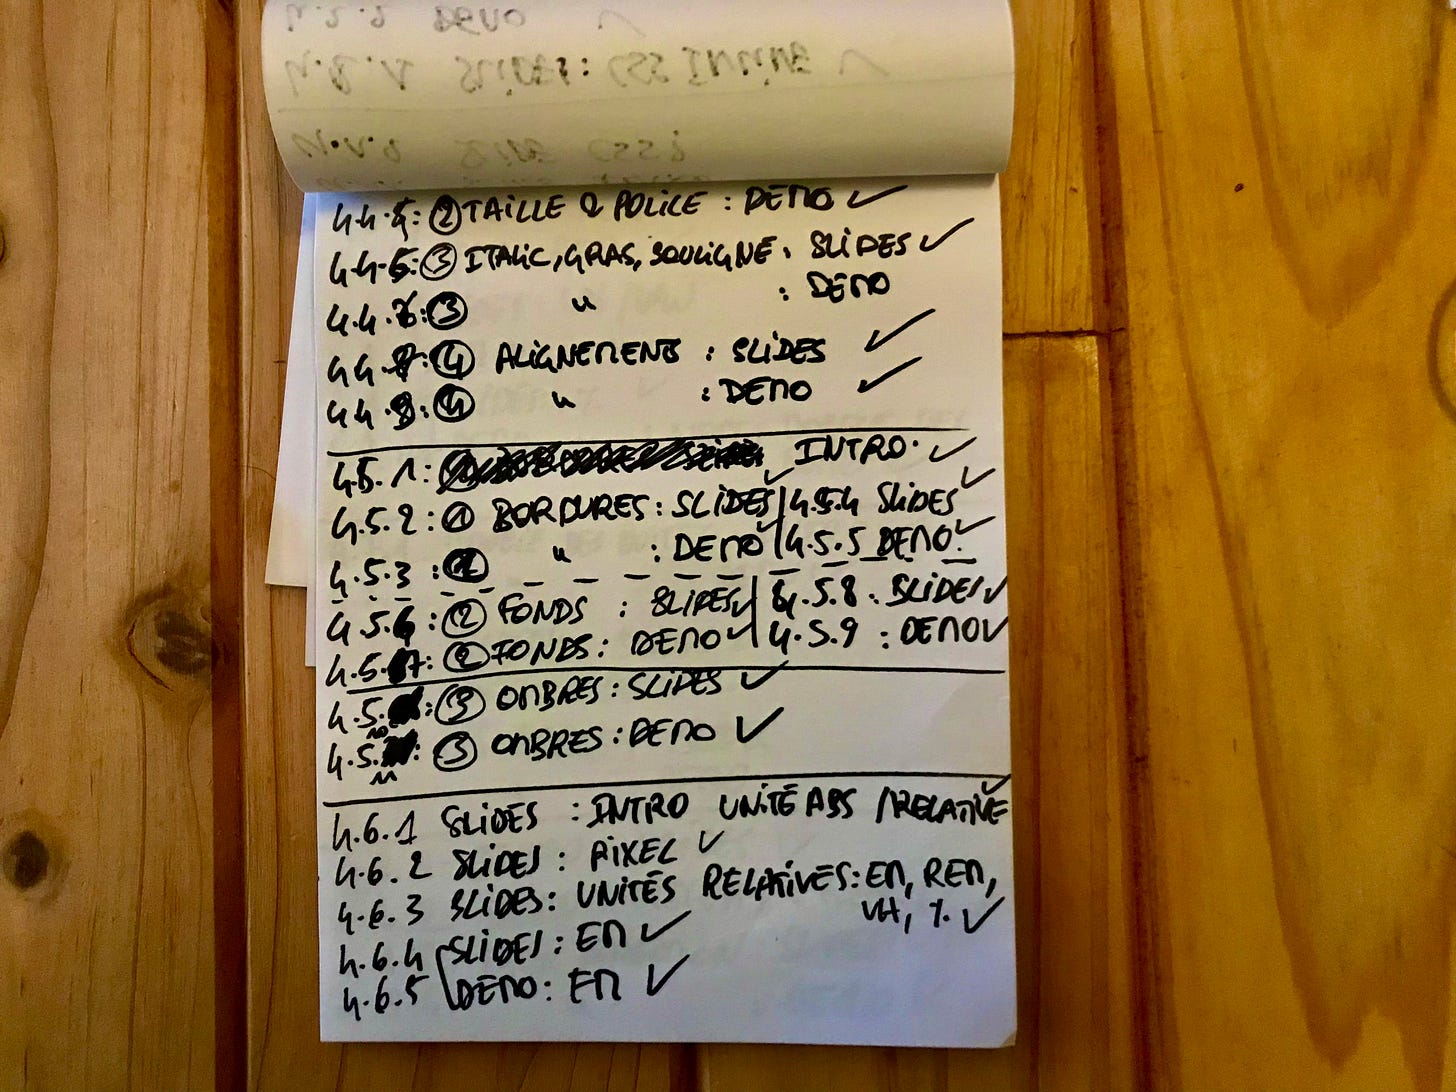 4.4.5: ② TAILLE & POLICE : DEMO ✓
4.4.6: ③ ITALIC, GRAS, SOULIGNE : SLIDES ✓
4.4.7: ③ " : DEMO
4.4.8: ④ ALIGNEMENT : SLIDES ✓
4.4.9: ④ " : DEMO ✓
4.5.1: INTRO. ✓
4.5.2: ① BORDURES : SLIDES ✓ | 4.5.4 SLIDES ✓
4.5.3: " : DEMO ✓ | 4.5.5 DEMO ✓
4.5.6: ② FONDS : SLIDES ✓ | 4.5.8 : SLIDES ✓
4.5.7: ② FONDS : DEMO ✓ | 4.5.9 : DEMO ✓
4.5.10: ③ OMBRES : SLIDES ✓
4.5.11: ③ OMBRES : DEMO ✓
4.6.1 SLIDES : INTRO UNITÉ ABS / RELATIVE ✓
4.6.2 SLIDES : PIXEL ✓
4.6.3 SLIDES : UNITÉS RELATIVES : EM, REM,
VH, % ✓
4.6.4 SLIDES : EM ✓
4.6.5 DEMO : EM ✓